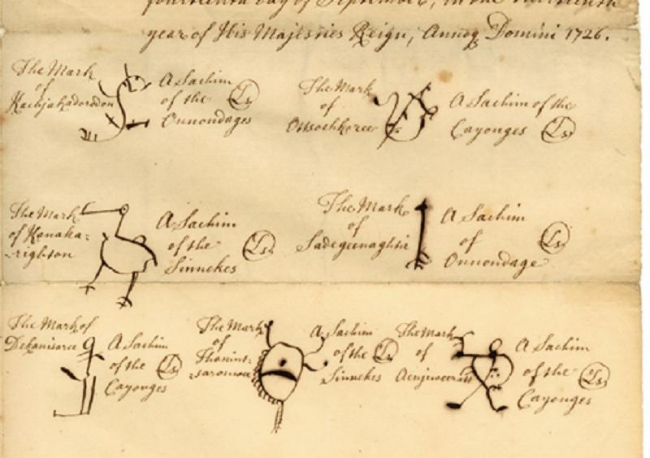 fourteenth day of September, in the
year of His Majesties Reign, Annoq Domini 1726.
The Mark
of
Kachjakadorodon
A Sachim
of the
Onnondages
Ls
The Mark
of
A Sachim of the
Cayonges
Ls
The Mark
of Kanaka:
righton
A Sachim
of the
Sinnekes
Ls
The Mark
of
Sadegeenaghtie
A Sachim
of
Onnondage
Ls
The Mark of
Dekanisoree
A Sachim
of the
Cayonges
Ls
The Mark
of
A Sachim
of the
Sinnekes
Ls
The Mark
of
A Sachim
of the
Cayonges
Ls